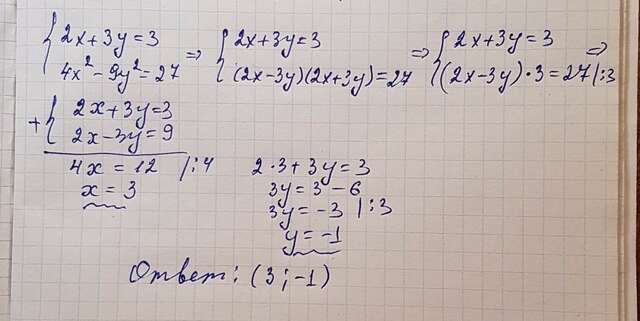 {2x+3y=3 => {2x+3y=3 => {2x+3y=3 =>
4x²-9y²=27 (2x-3y)(2x+3y)=27 ((2x-3y)·3=27 |:3
+{2x+3y=3
2x-3y=9
4x=12 |:4
x=3
2·3+3y=3
3y=3-6
3y=-3 |:3
y=-1
Ответ: (3;-1)